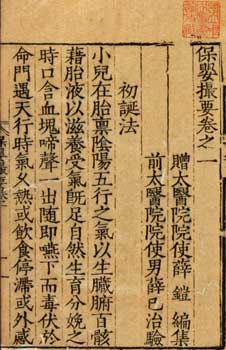 保嬰撮要卷之一
贈太醫院院使薛 鎧 編集
前太醫院院使男薛己治驗
初誕法
小兒在胎稟陰陽五行之氣以生臟腑百骸
藉胎液以滋養受氣既足自然生育分娩之
時口含血塊啼聲一出隨即嚥下而毒伏於
命門遇天行時氣久熱或飲食停滯或外感